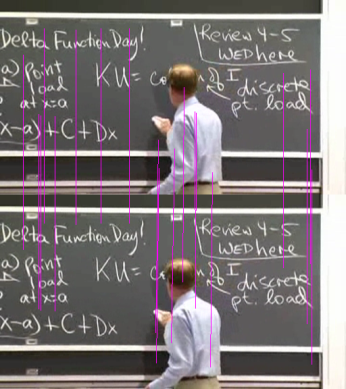 Delta Function Day!
a) point
load
at x=a
x-a) + C + Dx
KU = co of I
discrete
pt. load
Review 4-5
WED here
Delta Function Day!
a) point
oad
at x=a
x-a) + C + Dx
KU = c n of I
discrete
pt. load
Review 4-5
WED here